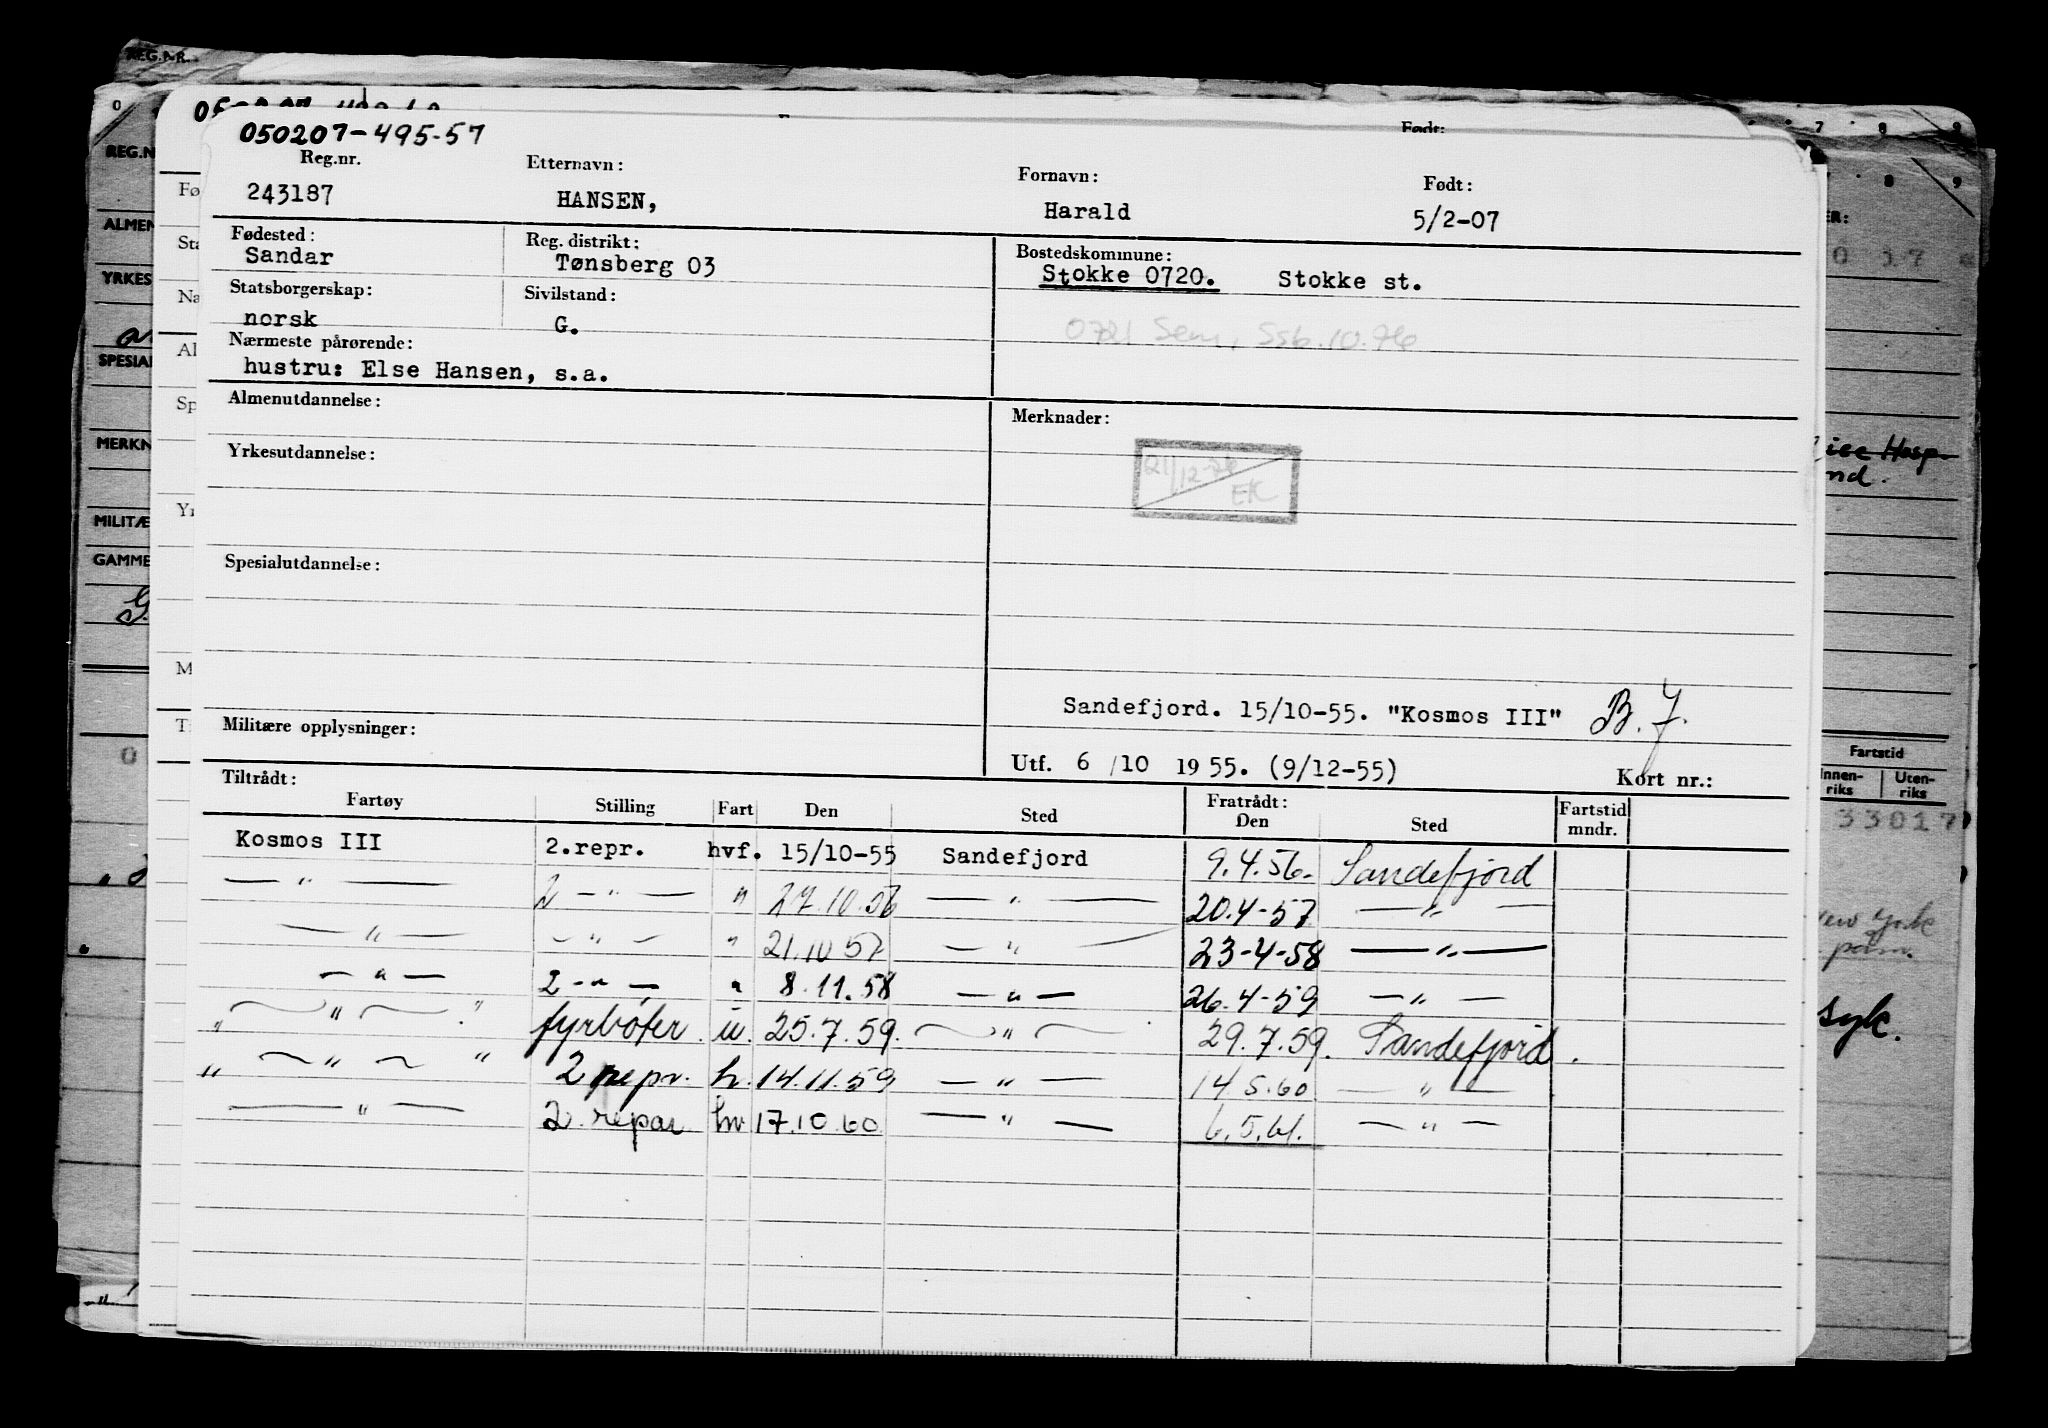 050207-495-57
Reg.nr. Etternavn: Fornavn: Født:
243187 HANSEN, Harald 5/2-07
Fødested: Reg. distrikt: Bostedskommune:
Sandar Tønsberg 03 Stokke 0720. Stokke st.
Statsborgerskap: Sivilstand:
norsk G. 0721 Sem, Ssb.10.76
Nærmeste pårørende:
hustru: Else Hansen, s.a.
Almenutdannelse: Merknader:
Yrkesutdannelse:
21/12-76
EK
Spesialutdannelse:
Sandefjord. 15/10-55. "Kosmos III" B.J.
Militære opplysninger:
Utf. 6/10 1955. (9/12-55) Kort nr.:
Tiltrådt: Fratrådt:
Fartøy Stilling Fart Den Sted Den Sted Fartstid mndr.
Kosmos III 2.repr. hvf. 15/10-55 Sandefjord 9.4.56. Sandefjord
— " — 2 — " — " 27.10.56 — " — 20.4-57 — " —
— " — — " — " 21.10 57 — " — 23-4-58 — " —
— " — 2 - " - " 8.11.58 — " — 26.4-59 — " —
" — " — " fyrbøter. u. 25.7.59. — " — 29.7.59. Sandefjord.
" — " — " 2 repr. h. 14.11.59 — " — 14 5.60 — " —
— " — 2. repar hv 17.10.60 — " — 6.5.61. — " —
REG.NR.
ALMEN
YRKES
SPESIAL
MERKN
MILITÆ
GAMME
Fartstid
Innen-riks Uten-riks
33017
New York
syk.